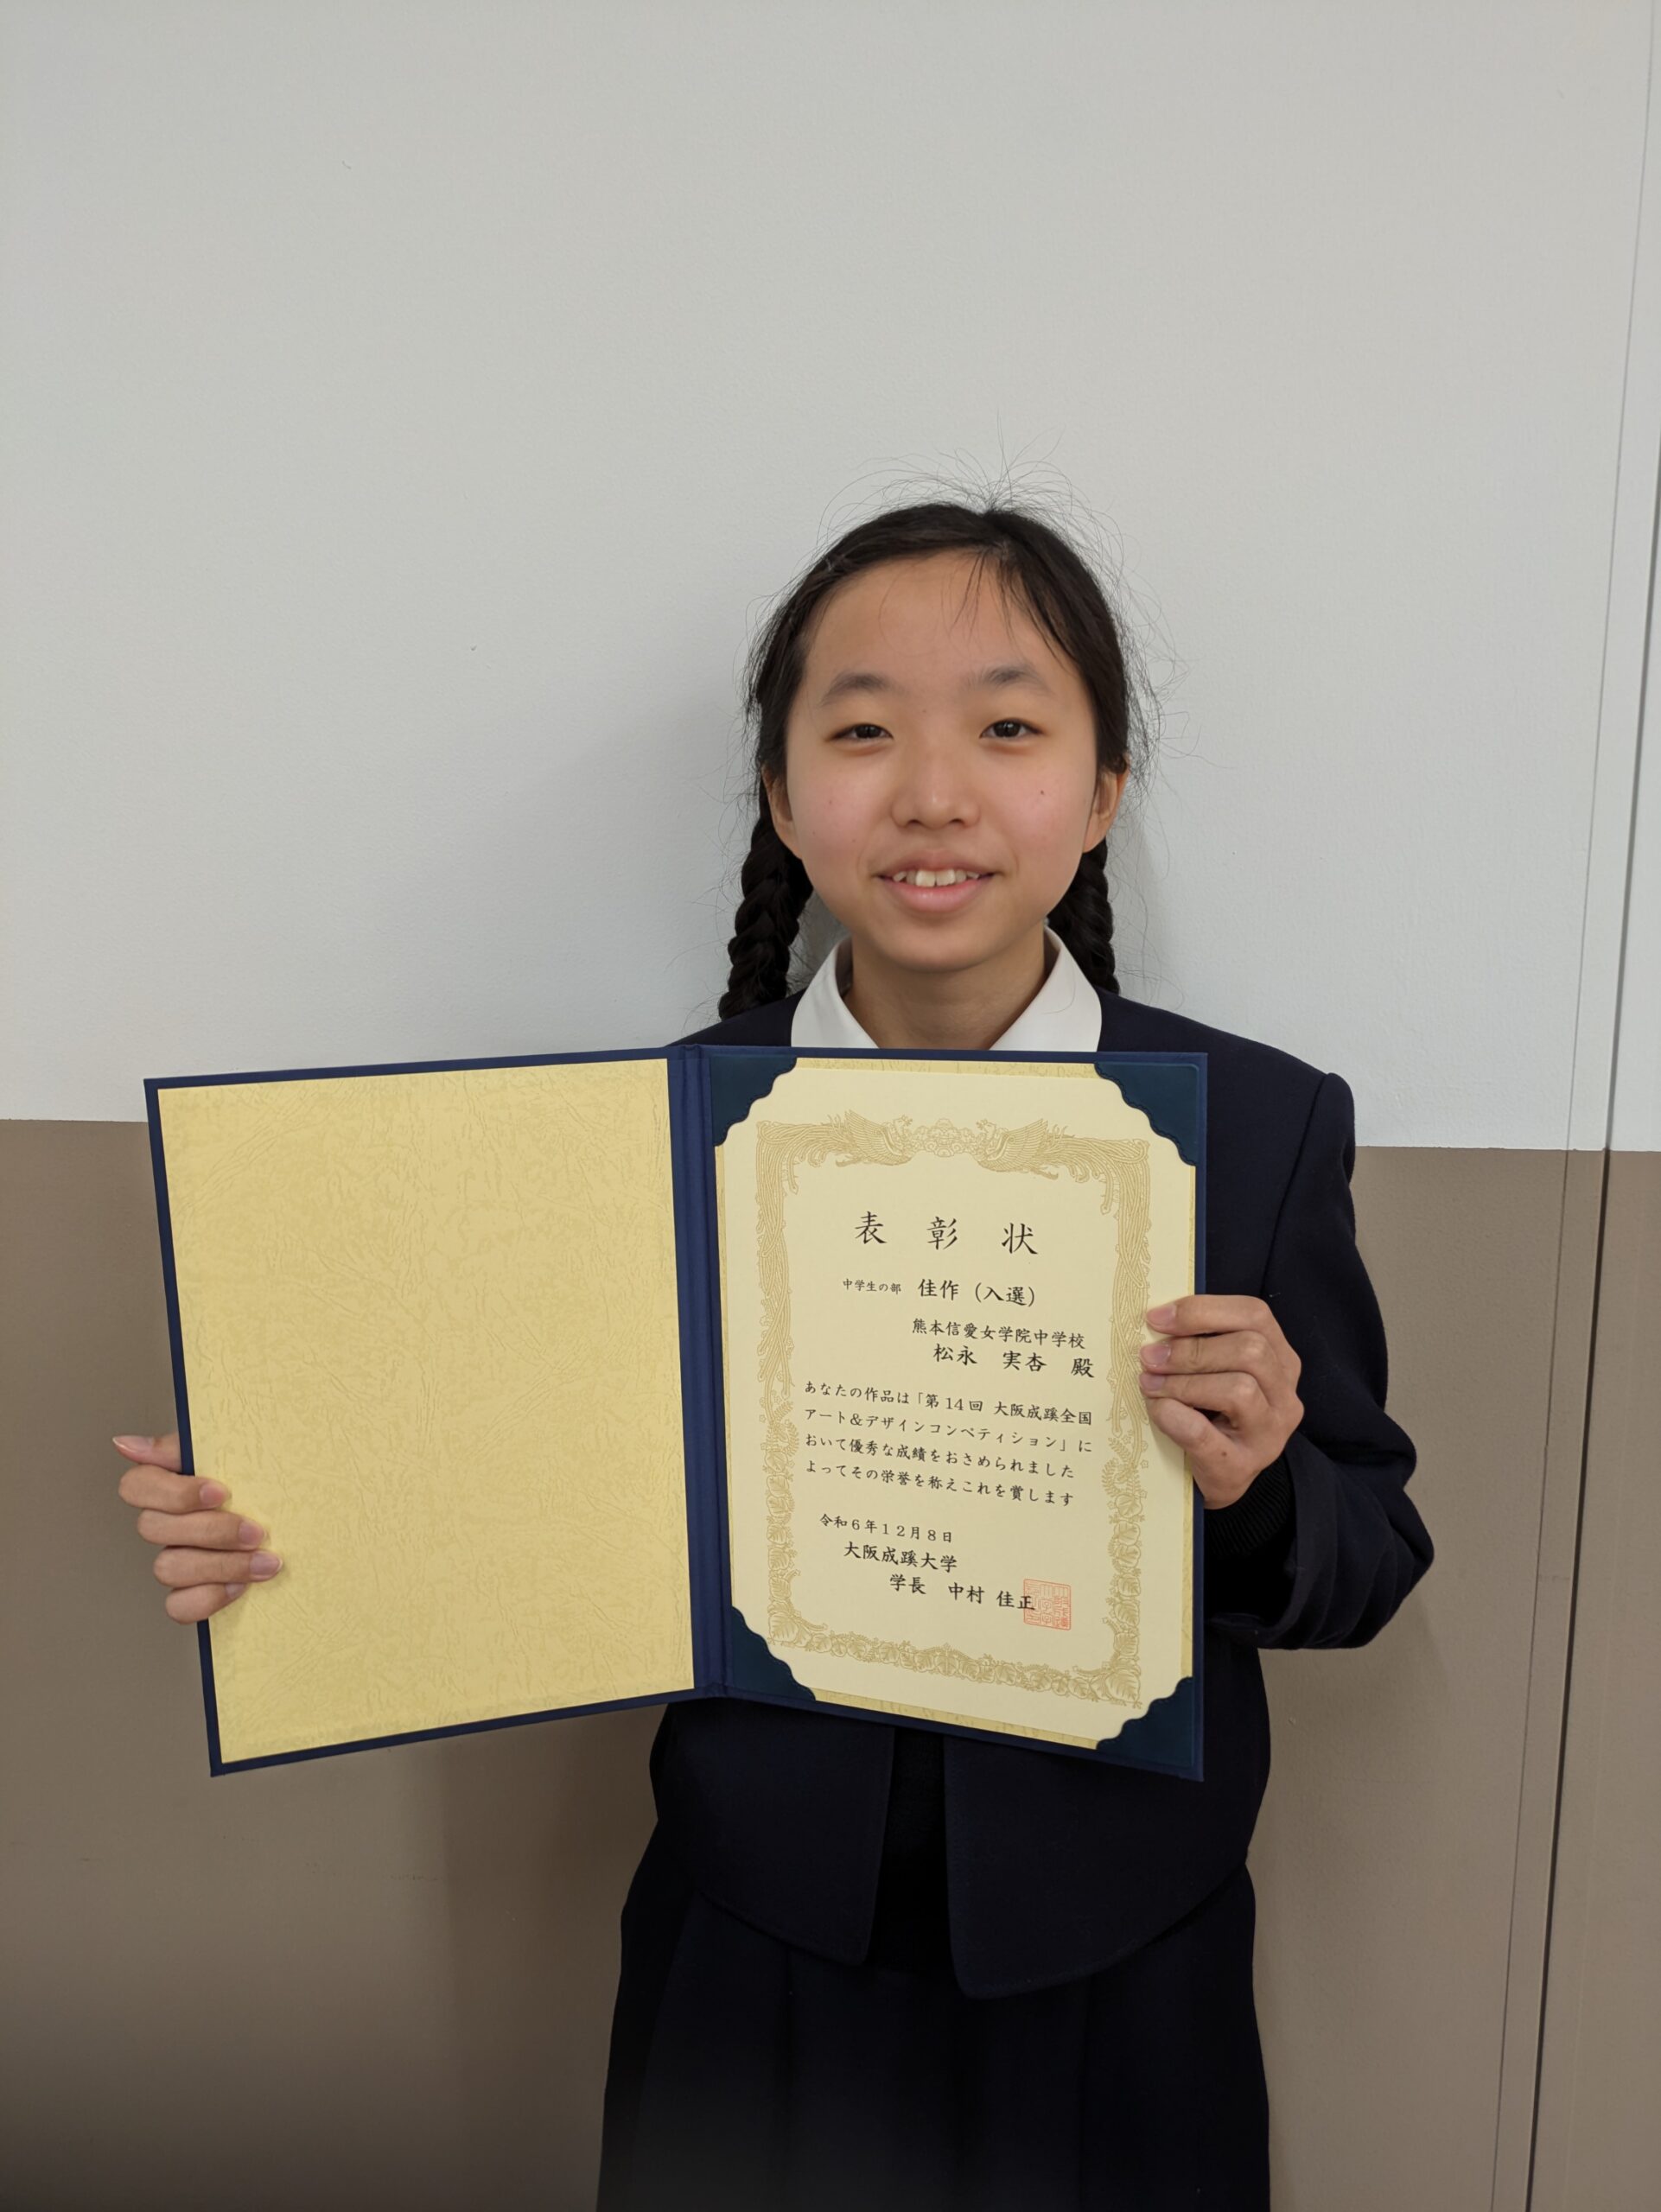 表彰状
中学生の部 佳作（入選）
熊本信愛女学院中学校
松永 実杏 殿
あなたの作品は「第14回 大阪成蹊全国
アート＆デザインコンペティション」に
おいて優秀な成績をおさめられました
よってその栄誉を称えこれを賞します
令和6年12月8日
大阪成蹊大学
学長 中村 佳正